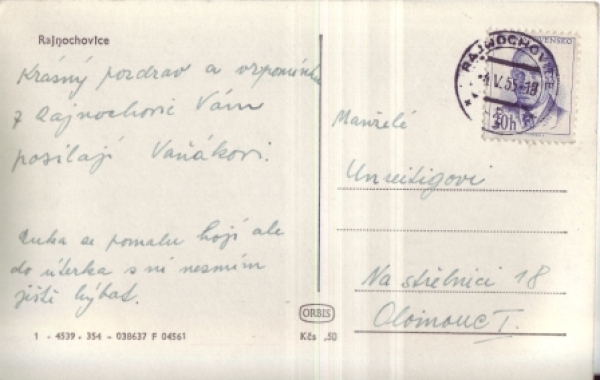 Rajnochovice
Krásný pozdrav a vzpomínku
z Rajnochovic Vám
posílají Vaňákovi.
Ruka se pomalu hojí ale
do úterka s ní nesmím
ještě hýbat.
1 - 4539 - 354 - 038637 F 04561
ORBIS
Kčs ,50
RAJNOCHOVICE
V.55-18
SLOVENSKO
30h
Manželé
Unzeitigovi
Na střelnici 18
Olomouc I.